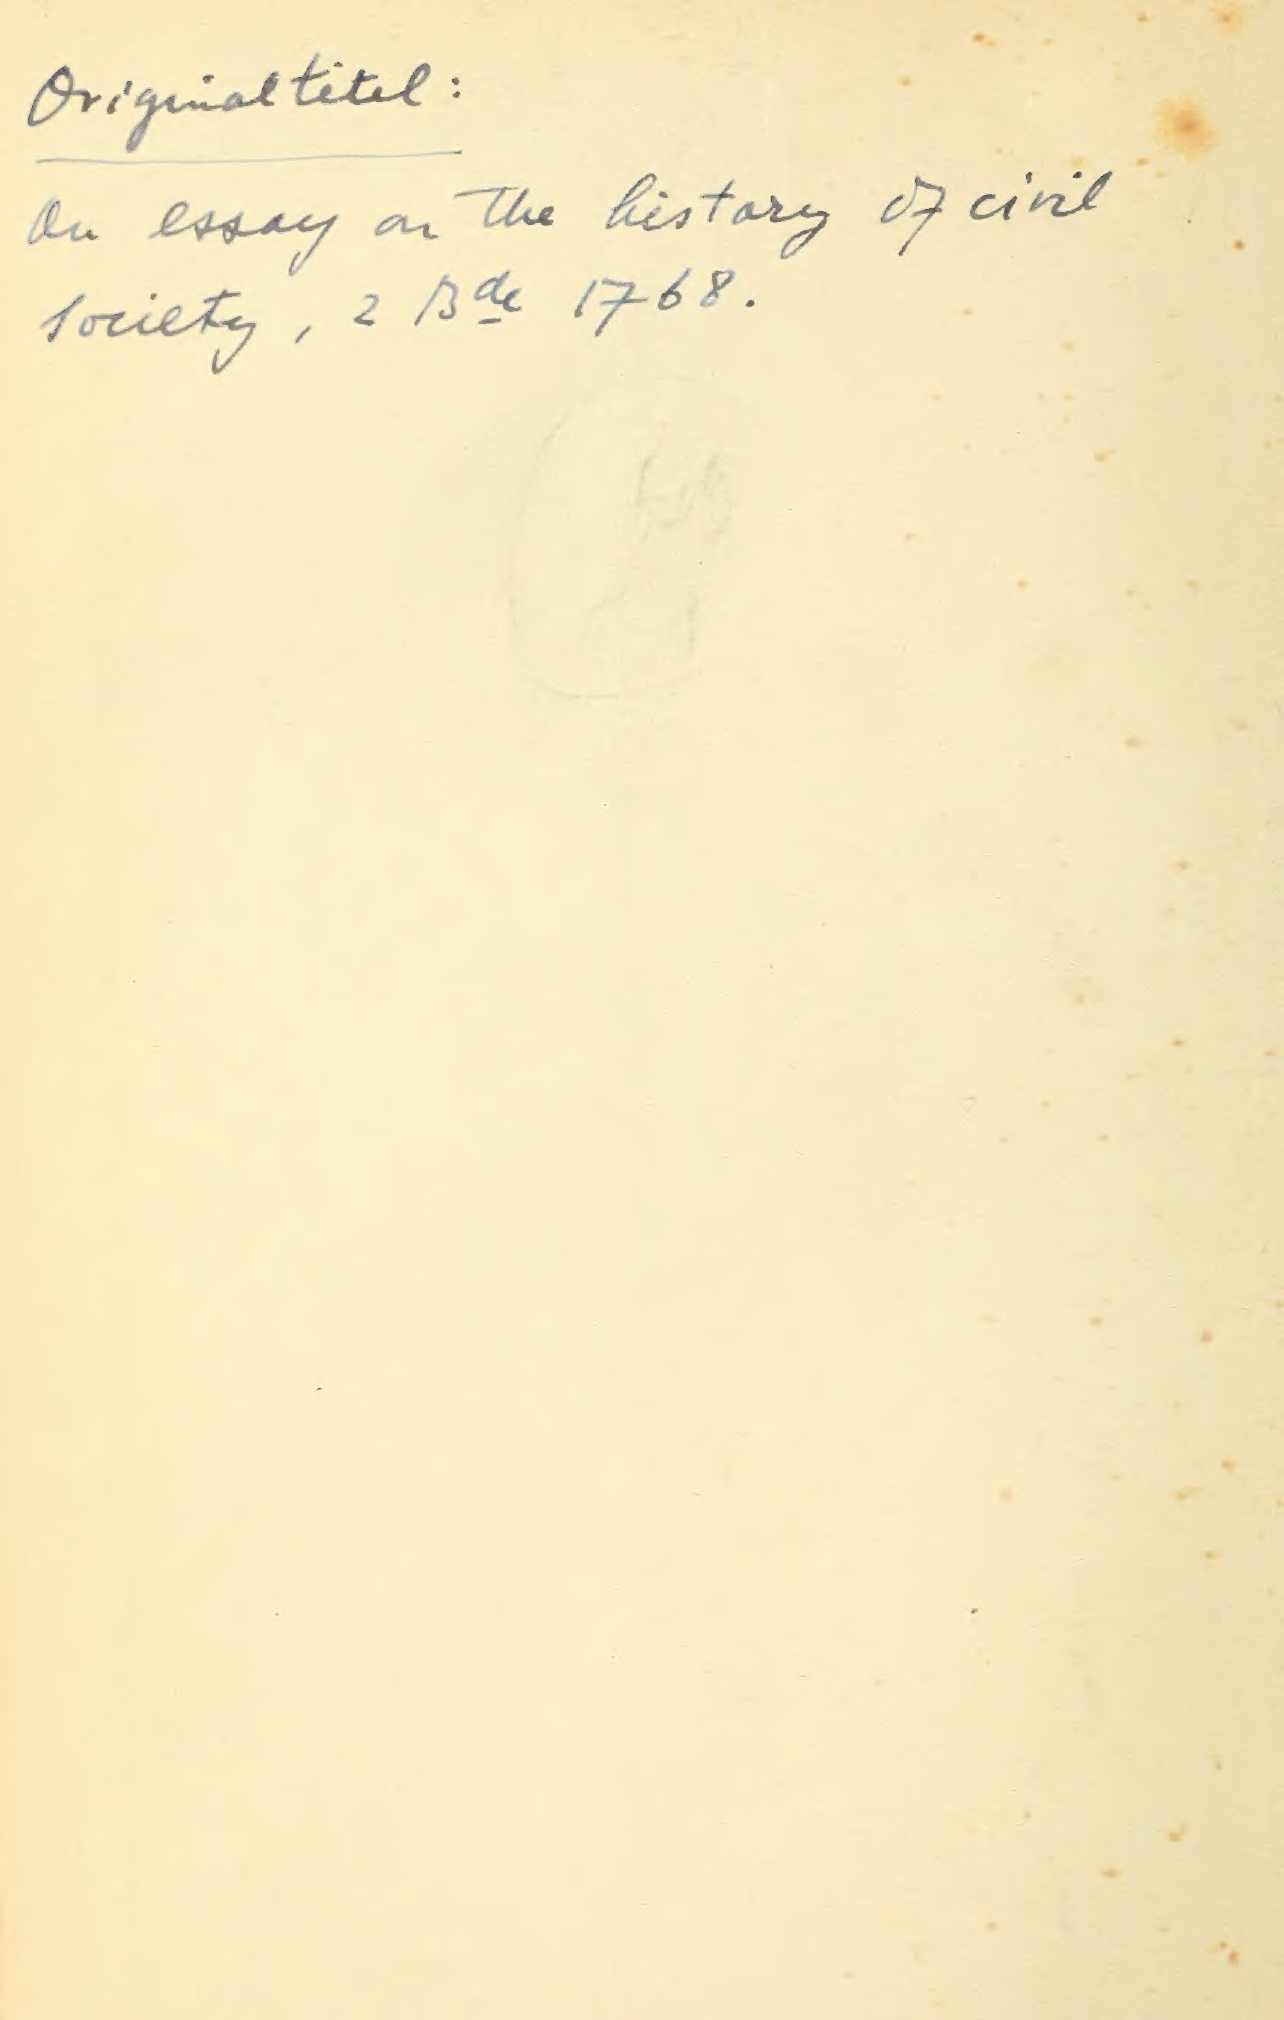 Originaltitel:
An essay on the history of civil
society, 2 Bde 1768.